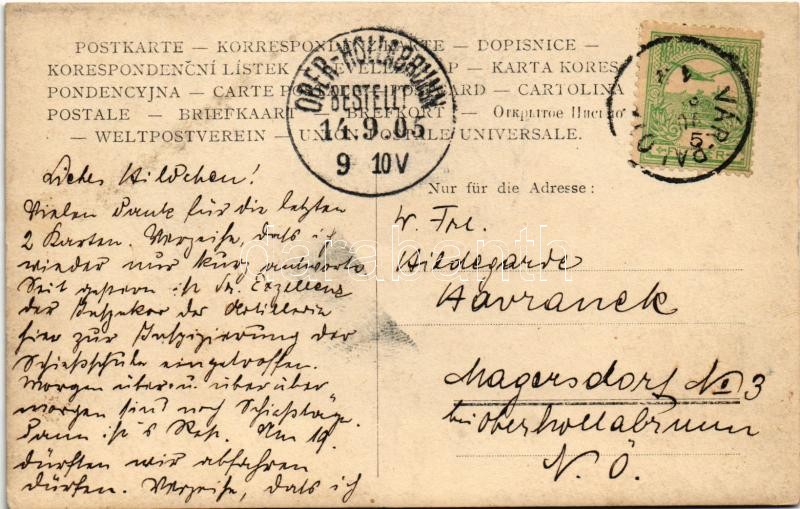 POSTKARTE — KORRESPONDENZKARTE — DOPISNICE —
KORESPONDENČNÍ LÍSTEK — LEVELEZŐ LAP — KARTA KORES-
PONDENCYJNA — CARTE POSTALE — POST CARD — CARTOLINA
POSTALE — BRIEFKAART — BREFKORT — Открытое Письмо
— WELTPOSTVEREIN — UNION POSTALE UNIVERSALE.
OBER-HOLLABRUNN
BESTELLT
14.9.05
9 10V
VÁRPALOTA
Nur für die Adresse:
Liebes Hildchen!
Vielen Dank für die letzten
2 Karten. Verzeihe, dass ich
wieder nur kurz antworte
Seit gestern ist Se. Exzellenz
der Inspektor der Artillerie
hier zur Inspizierung der
Schießschule eingetroffen.
Morgen über- u. überüber
morgen sind noch Schießtage.
Dann ist's Am 19.
dürften wir abfahren
dürfen. Verzeihe, dass ich
W. Frl.
Hildegarde
Havranek
Magersdorf No 3
bei Oberhollabrunn
N. Ö.
darabanth